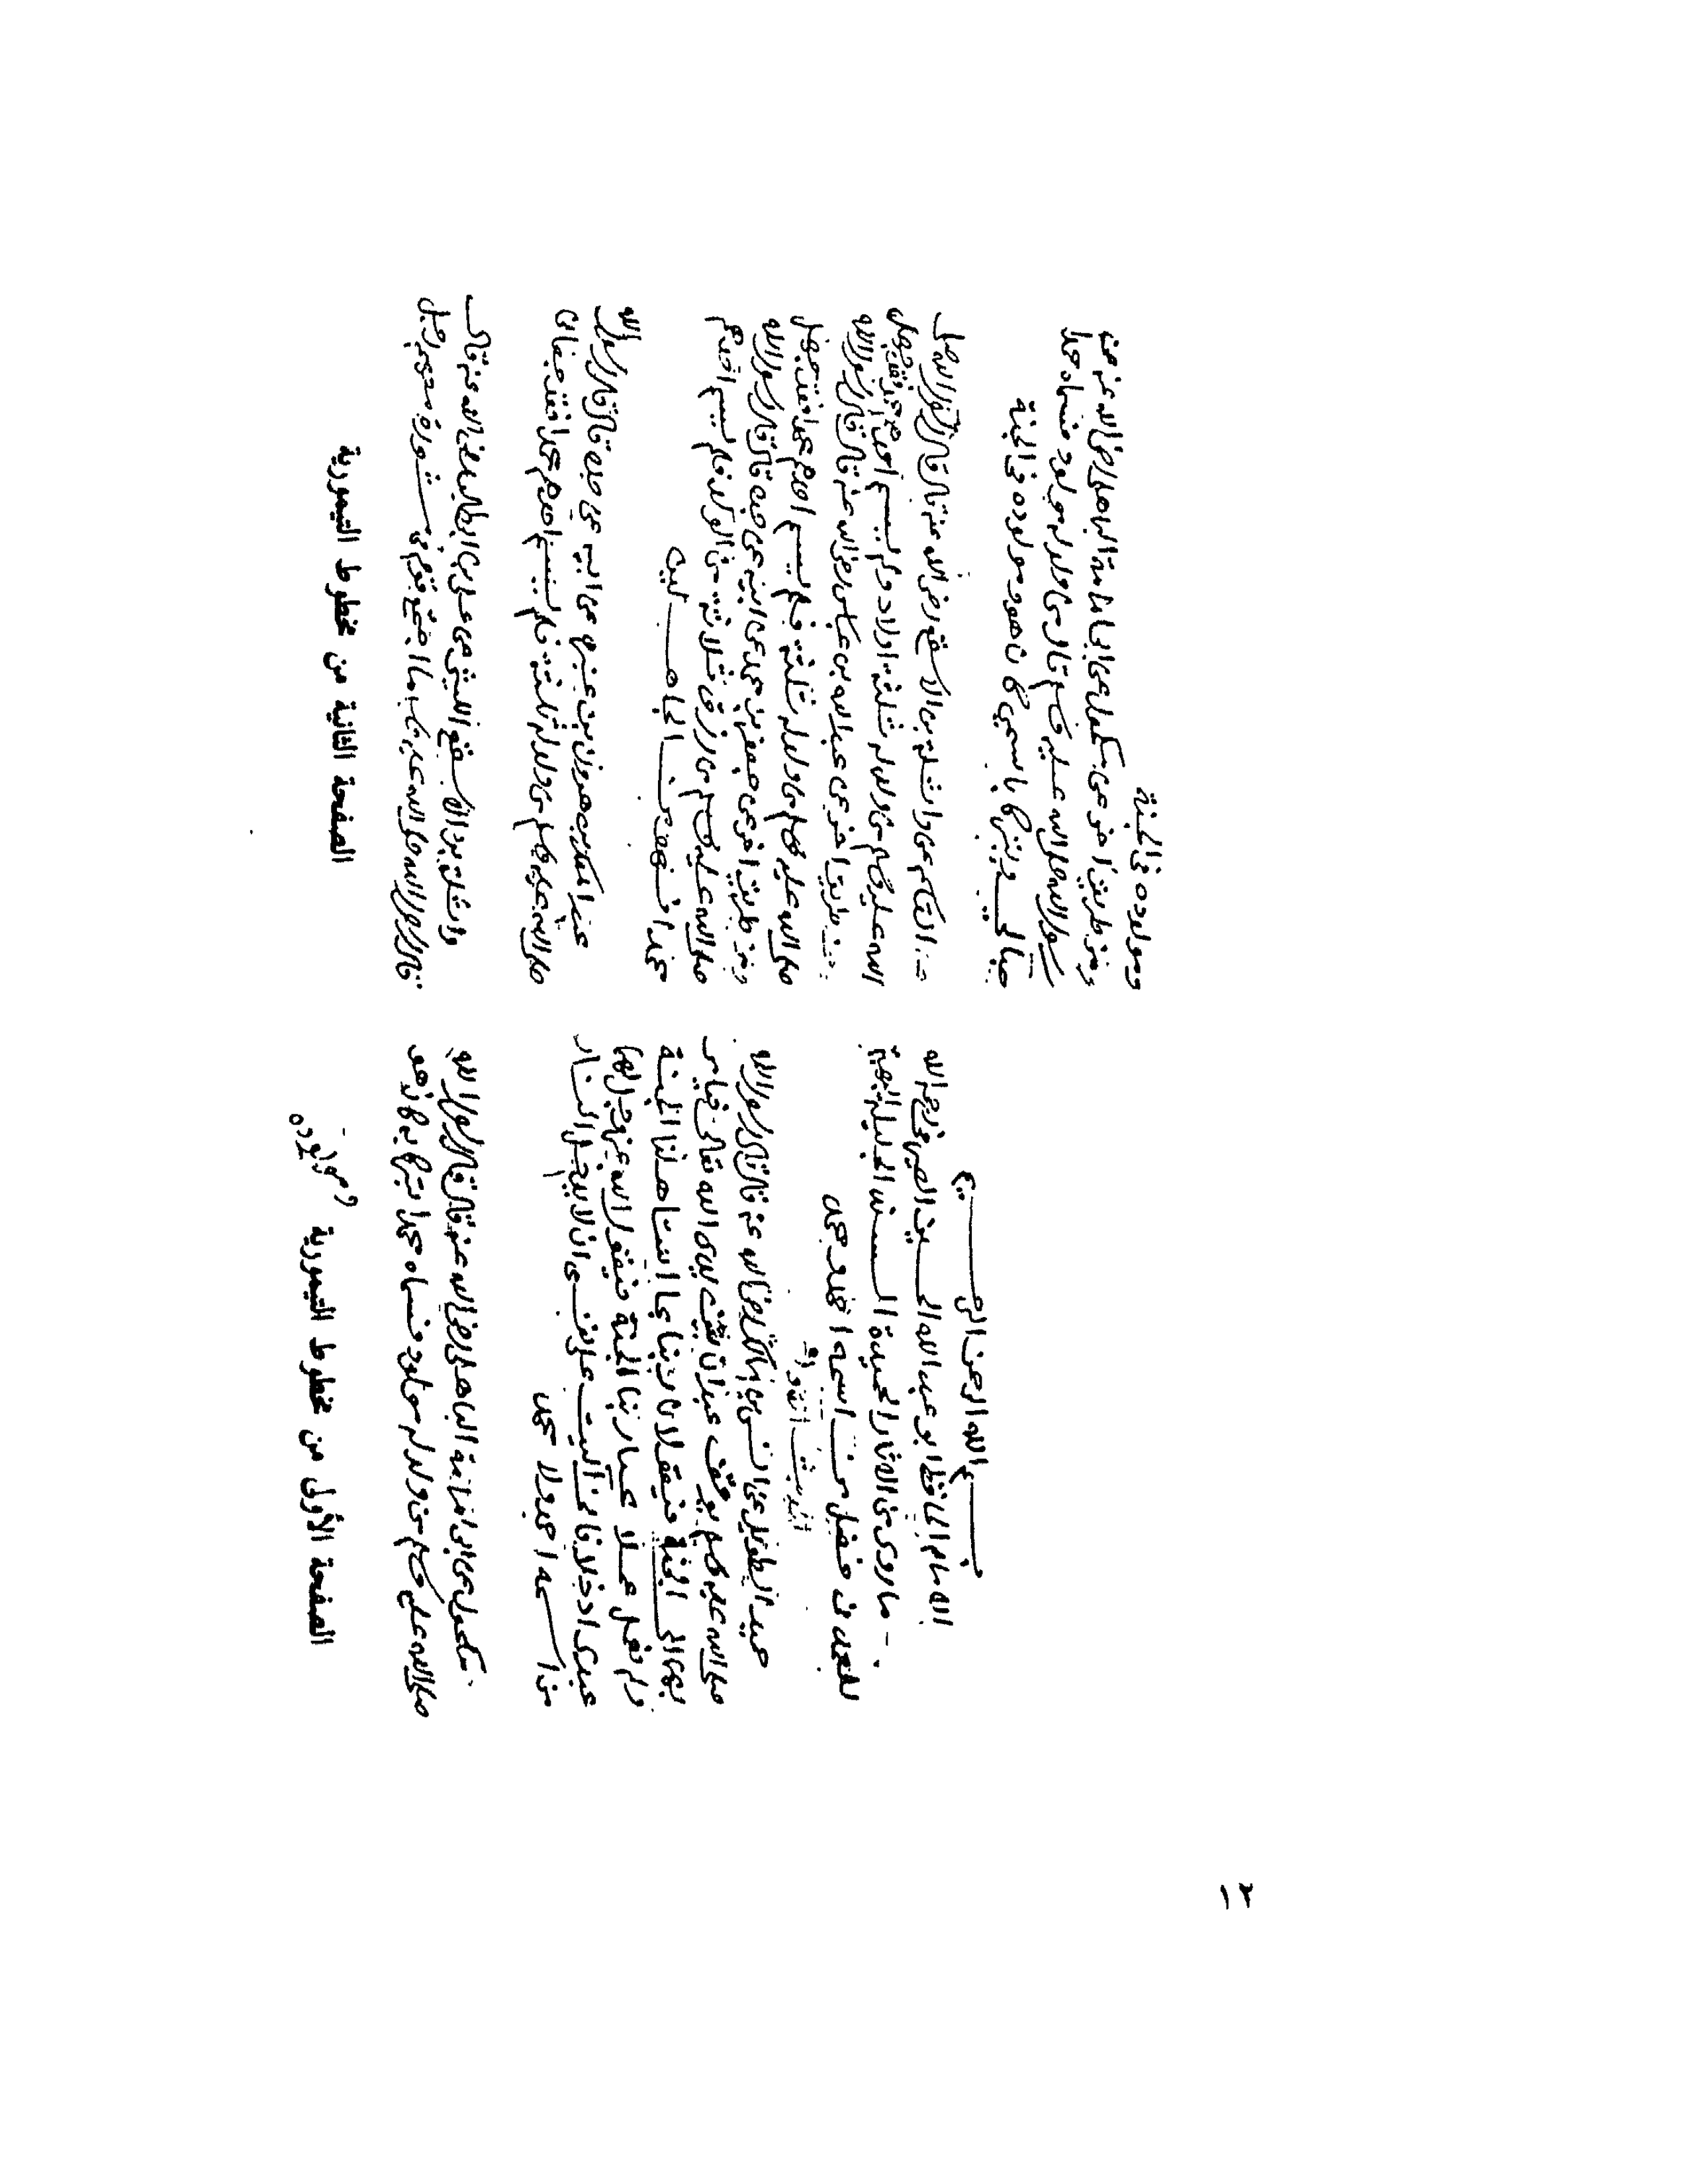 بسم الله الرحمن الرحيم
الامام الحافظ ابو عبد الله الحسين الصيرفى رحمه الله
ما روى من الاثار الحميدة السنن الجليلة البهية
فى فضل من اسمه احمد ومحمد
حميد الطويل عن انس بن مالك رضى الله عنه قال قال رسول الله
صلى الله عليه وسلم يوقف عبدان بين يدى الله تعالى فيامر
بهما الى الجنة فيقولان ربنا بما استاهلنا الجنة
ولم نعمل عملا تجازينا الجنة فيقول الله عز وجل لهما
عبدى ادخلا فانى اليت على نفسى ان لا يدخل النار
من اسمه احمد ولا محمد
مكحول عن ابى امامة الباهلى رضى الله عنه قال قال رسول الله
صلى الله عليه وسلم من ولد له مولود فسماه محمدا تبركا به كان هو
ومولوده
الصفحة الأولى من مخطوط التيمورية
ومولوده فى الجنة
ومن طريق اخر عن مكحول عن ابى امامة الباهلى رضى الله عنه عن
رسول الله صلى الله عليه وسلم قال من ولد له مولود فسماه محمدا
حبا لى وتبركا باسمى كان هو ومولوده فى الجنة
عن واثلة بن الاسقع رضى الله عنه قال قال رسول الله صلى
الله عليه وسلم من ولد له ثلثة اولاد ولم يسم احدهم محمد فقد جهل
ومن طريق اخر عن عبد الله بن عباس رضى الله عنه قال قال رسول الله
صلى الله عليه وسلم من ولد له ثلثة فلم يسم احدهم محمدا فقد جهل
ومن طريق اخر عن جعفر بن محمد عن ابيه عن جده قال قال رسول الله
صلى الله عليه وسلم من رزق ثلاثة من الولد فلم يسم احدهم
محمدا فهو من الجاهلين
عبد الملك بن هرون بن عنترة عن ابيه عن جده قال قال رسول الله
صلى الله عليه وسلم من ولد له ثلثة فلم يسم احدهم محمدا فقد جفانى
واثلة بن الاسقع الليثى عن على بن ابى طالب رضى الله عنه قال
قال رسول الله صلى الله عليه وسلم ما اجتمع قوم فى مشورة معهم رجل
الصفحة الثانية من مخطوط التيمورية
١٢